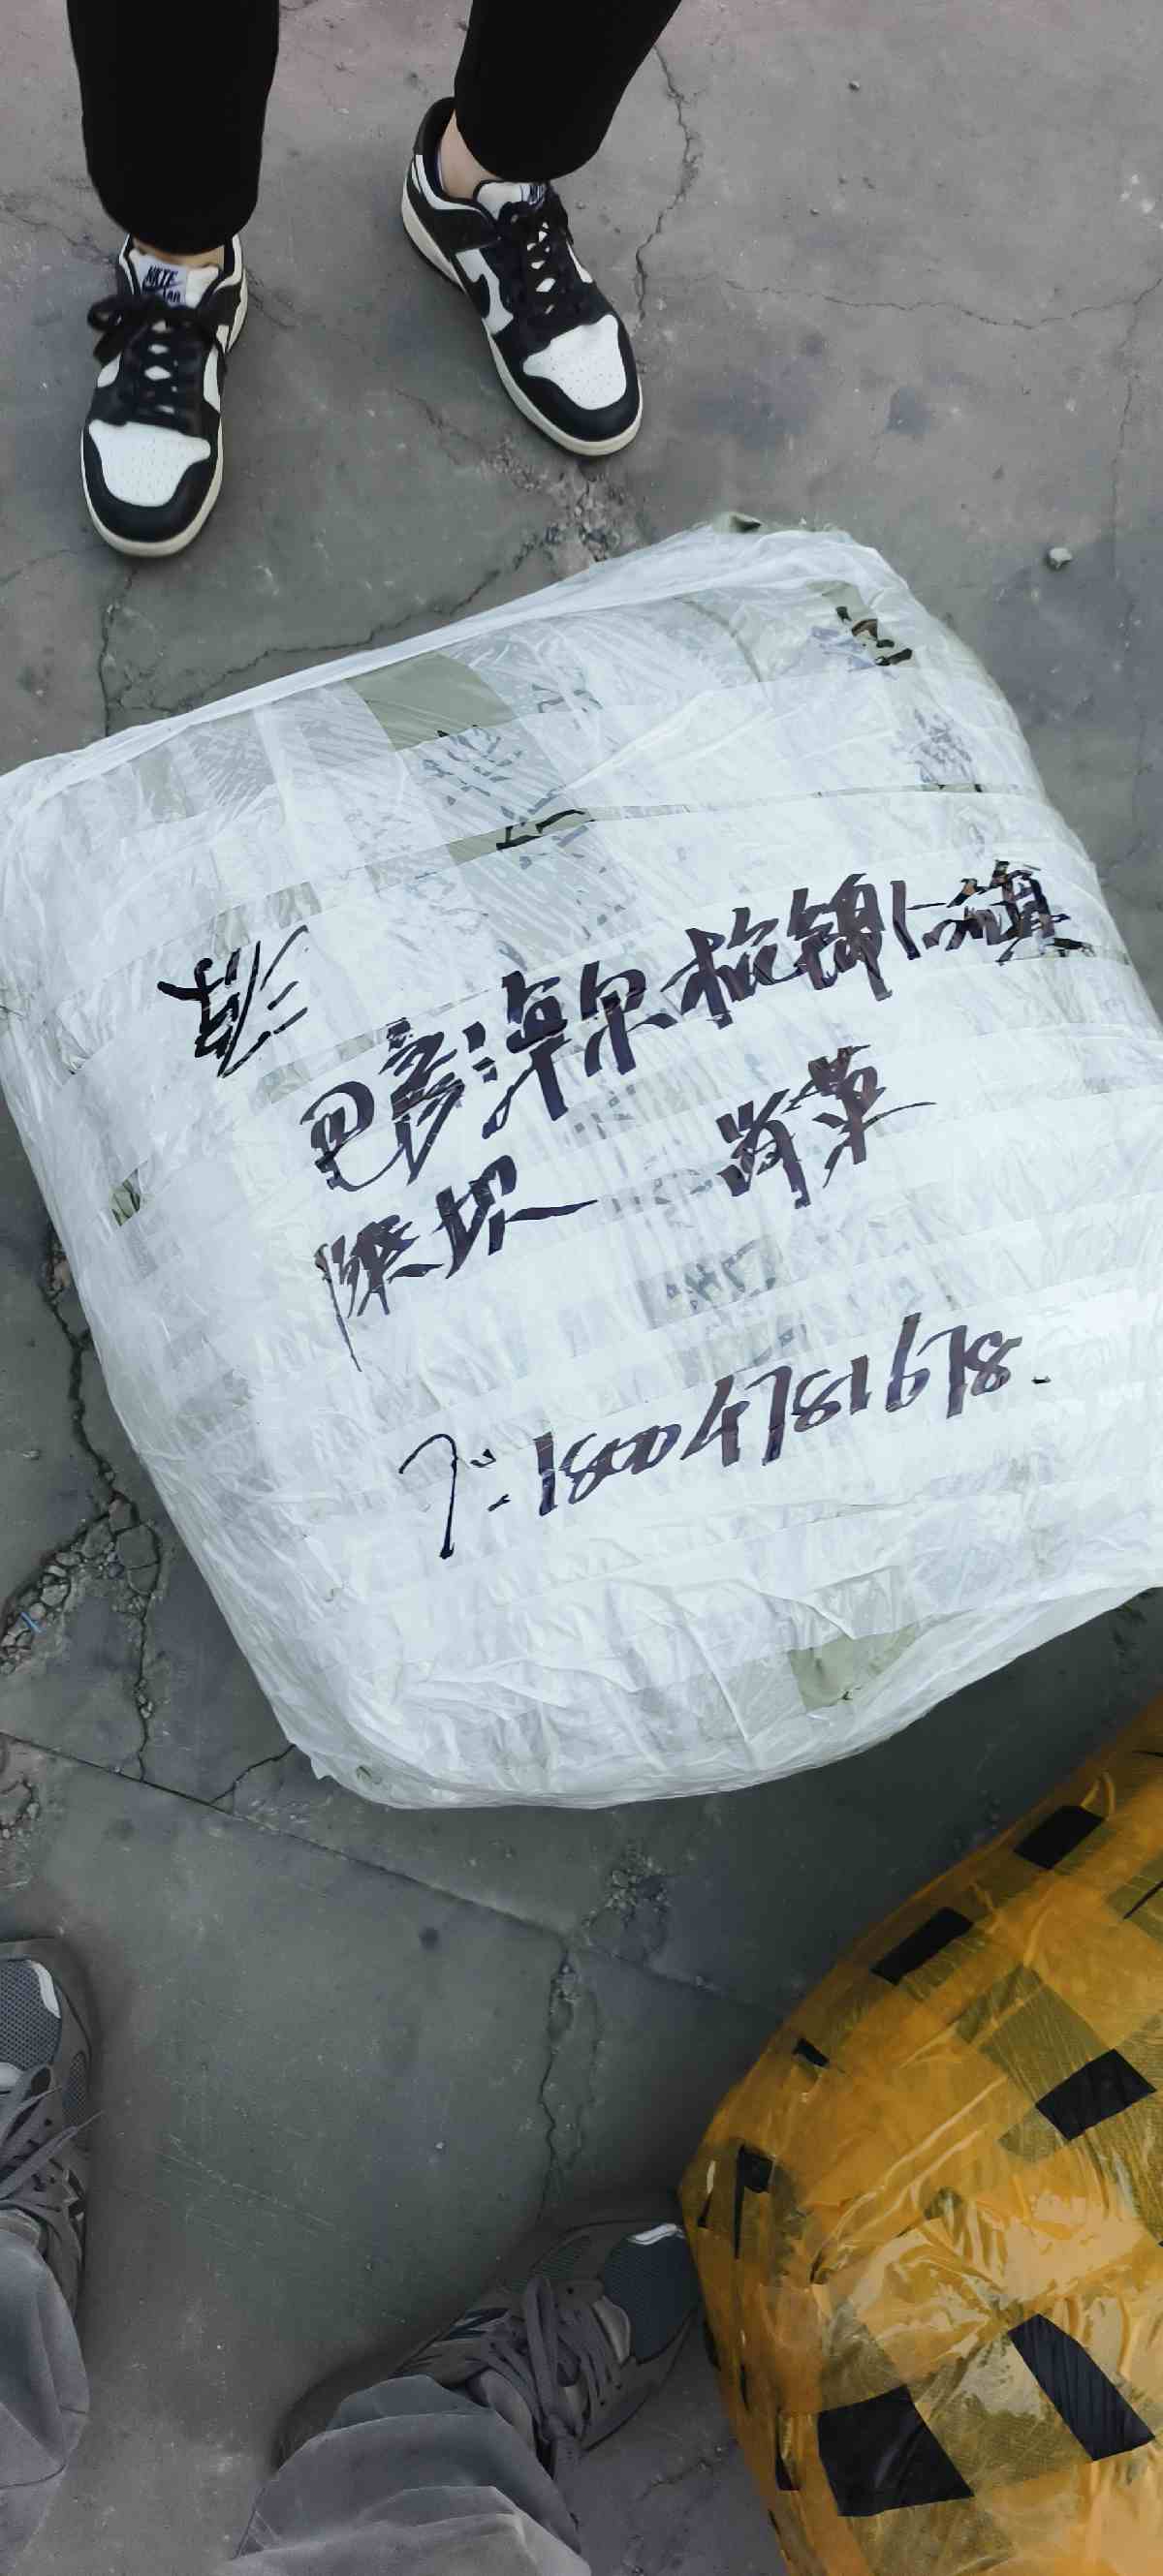 NIKE
彭
巴彦淖尔 杭锦后旗
陕坝 — 肖荣
T: 18004781678.